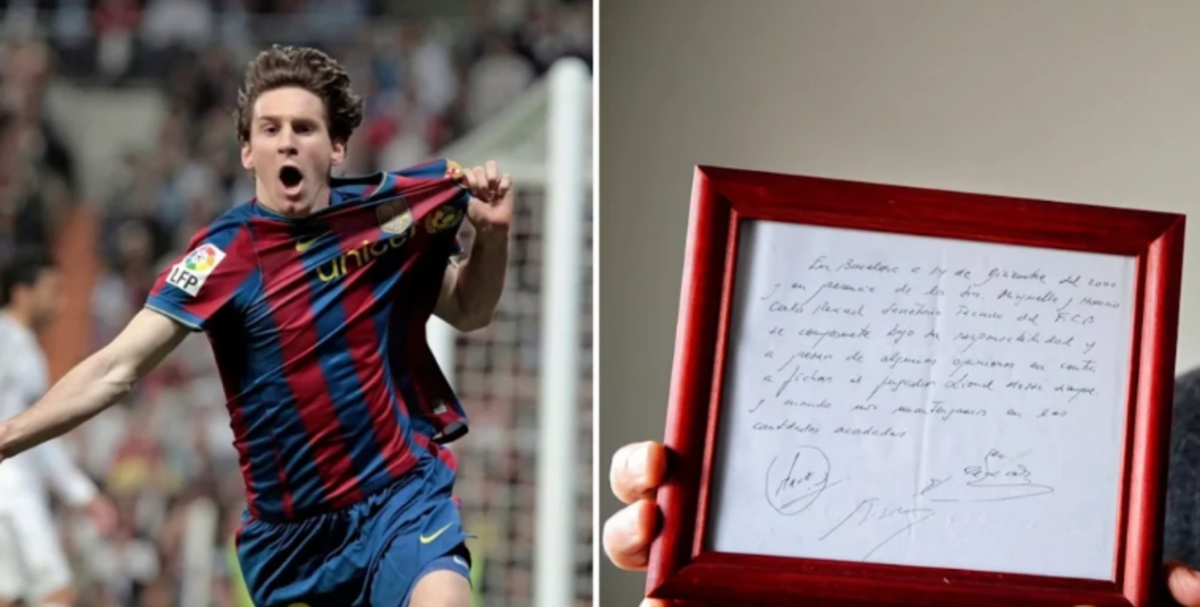 LFP
unicef
En Barcelona a 14 de Diciembre del 2000
y en presencia de los Srs. Minguella y Horacio
Carlos Rexach Secretario Tecnico del F.C.B
se compromete bajo su responsabilidad y
a pesar de algunas opiniones en contra
a fichar al jugador Lionel Messi siempre
y cuando nos mantengamos en las
cantidades acordadas